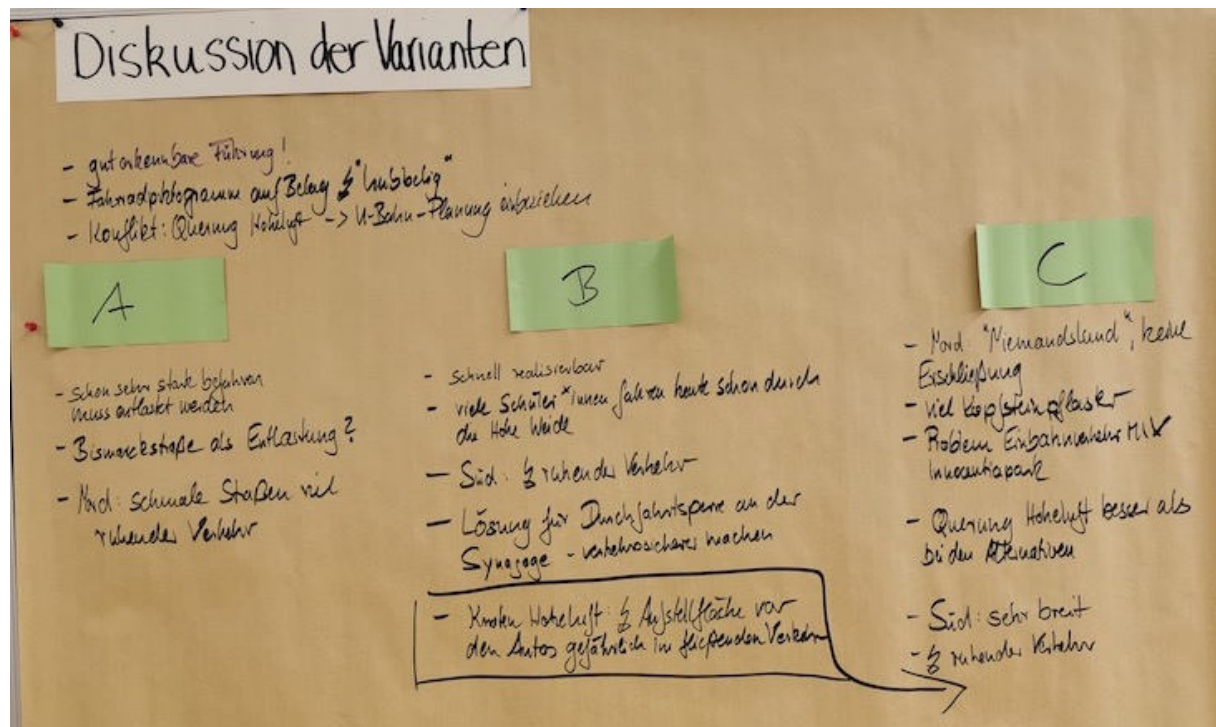 Diskussion der Varianten
- gut erkennbare Führung!
- Fahrradpiktogramme auf Belag ↯ "hubbelig"
- Konflikt: Querung Hoheluft -> U-Bahn-Planung einbeziehen
A
- schon sehr stark befahren
muss entlastet werden
- Bismarckstraße als Entlastung?
- Nord: schmale Straßen viel
ruhender Verkehr
B
- schnell realisierbar
- viele Schüler*innen fahren heute schon durch
die Hohe Weide
- Süd: ↯ ruhender Verkehr
- Lösung für Durchfahrtsperre an der
Synagoge - verkehrssicherer machen
- Knoten Hoheluft: ↯ Aufstellfläche vor
den Autos gefährlich im fließenden Verkehr
C
- Nord: "Niemandsland", keine
Erschließung
- viel Kopfsteinpflaster
- Problem Einbahnverkehr MIV
Innocentiapark
- Querung Hoheluft besser als
bei den Alternativen
- Süd: sehr breit
- ↯ ruhender Verkehr